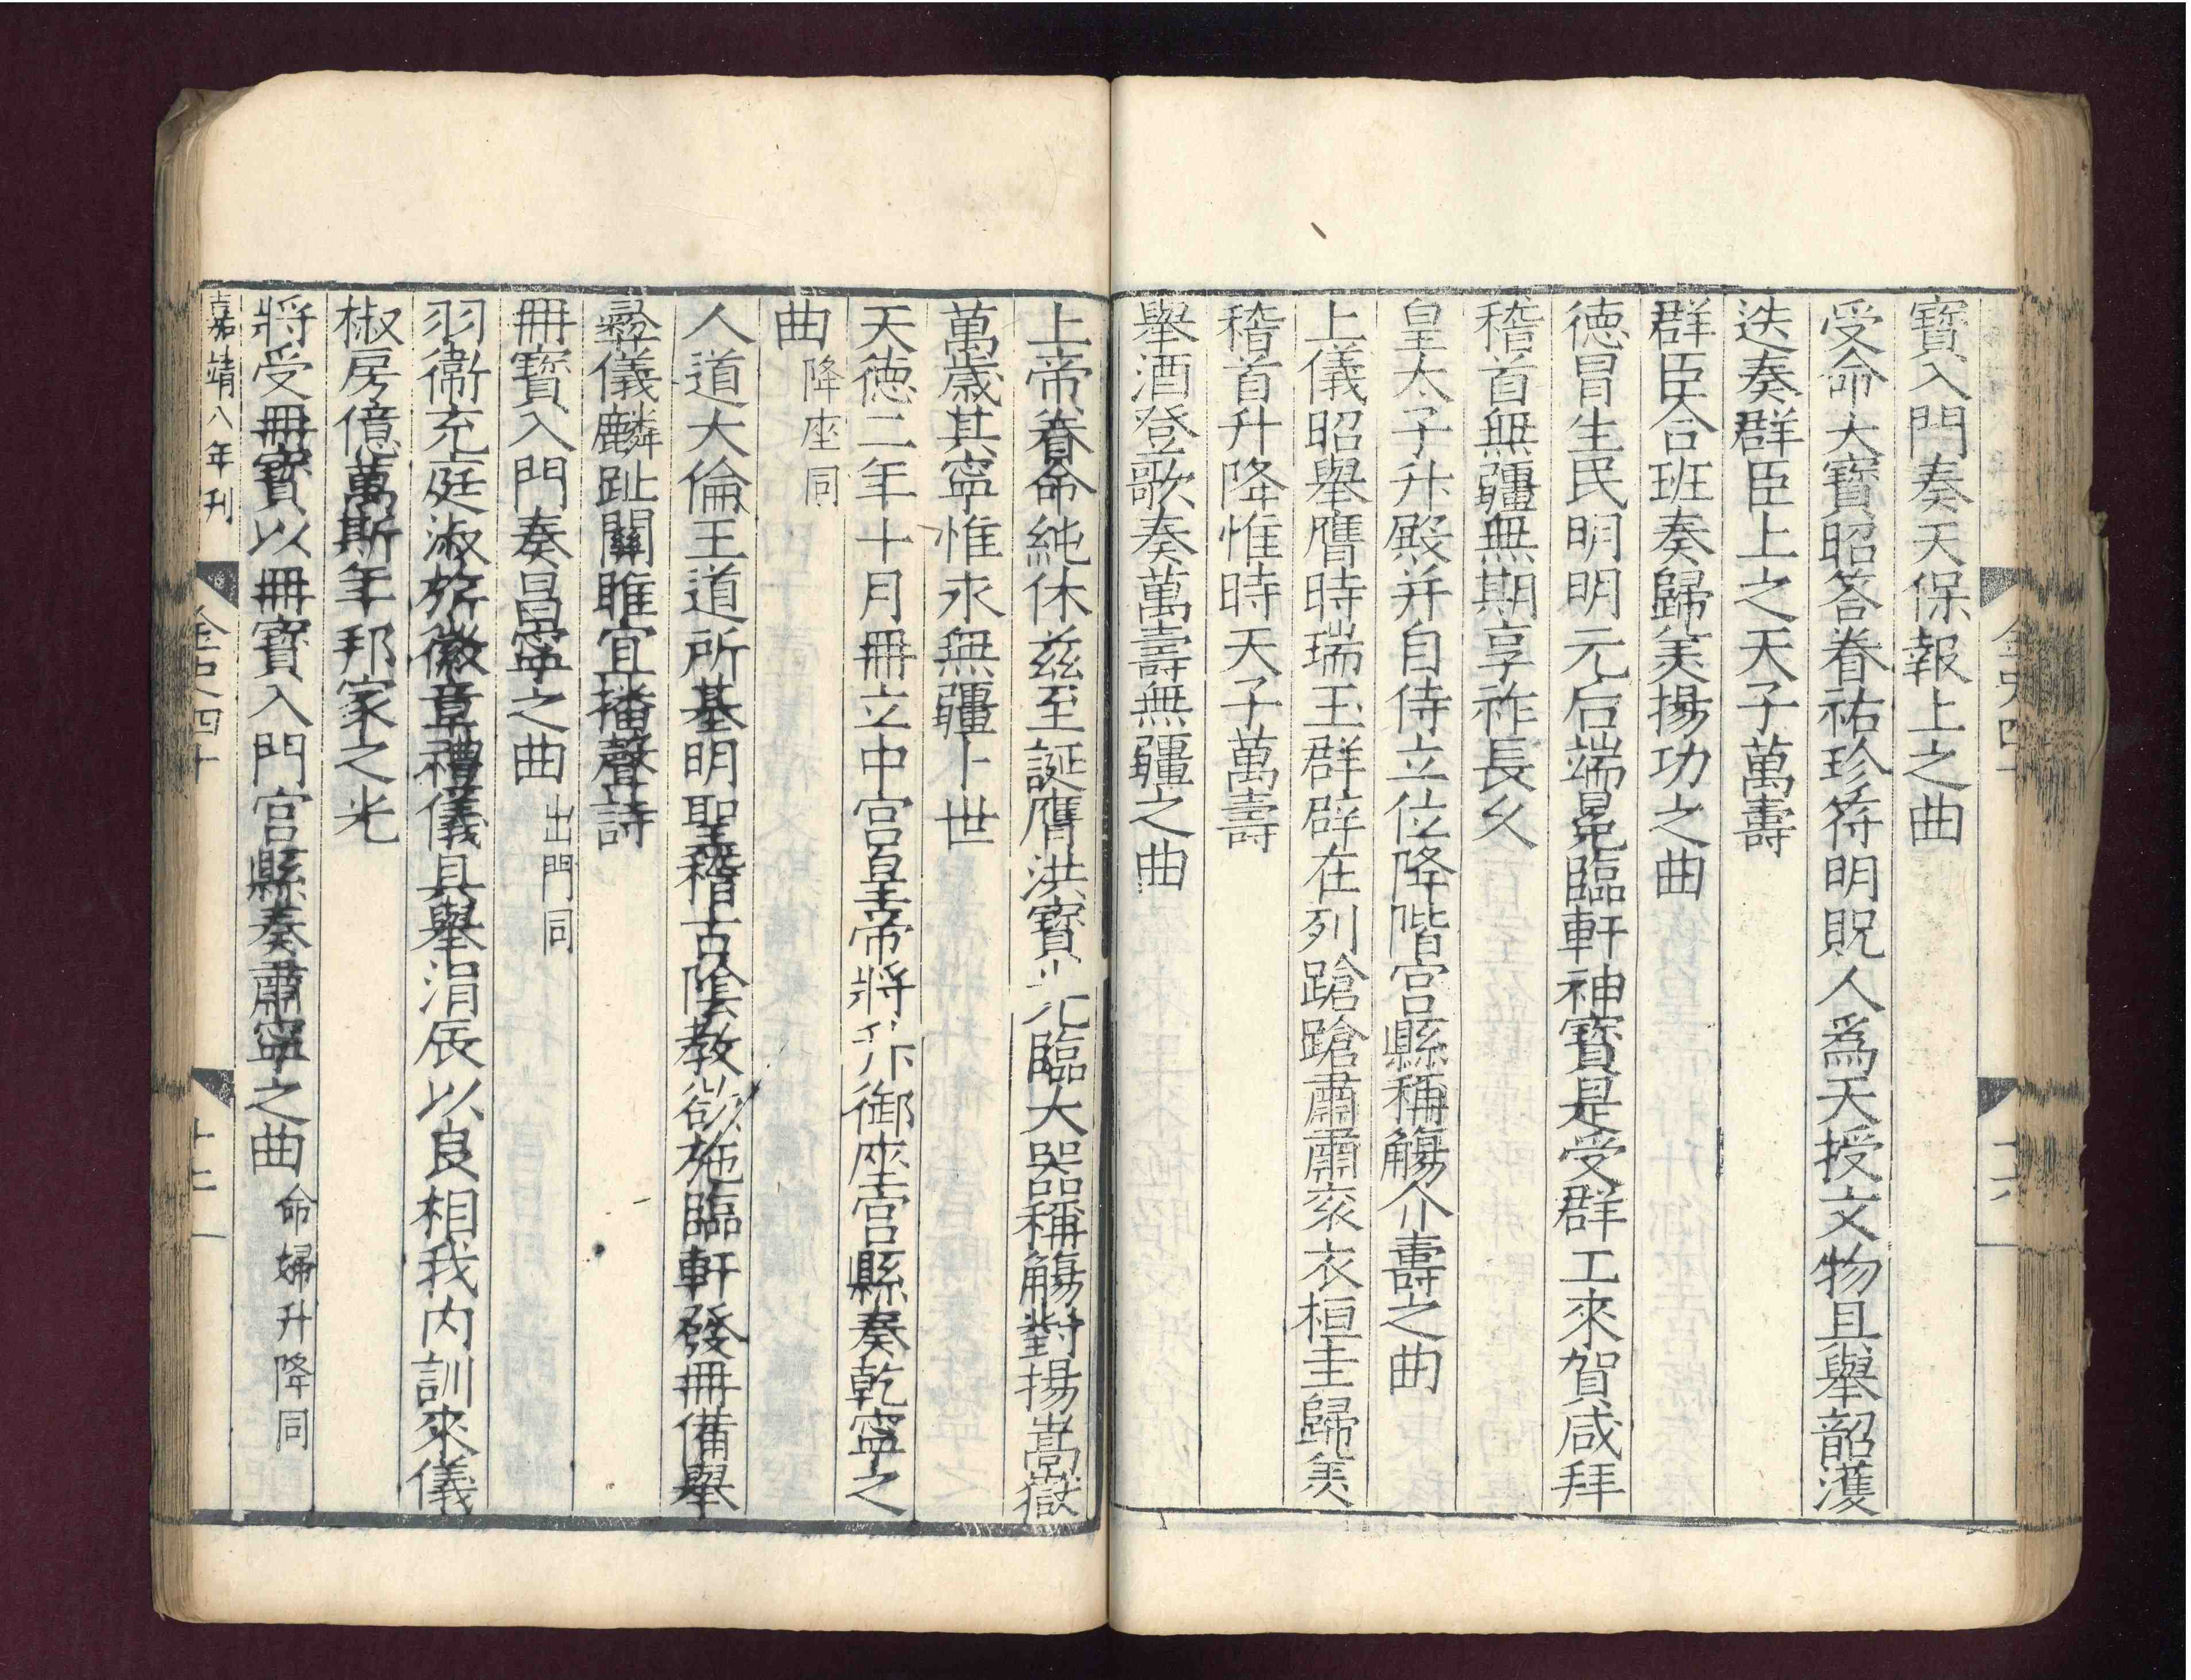 寶入門奏天保報上之曲
受命大寶昭荅眷祐珍符明貺人爲天授文物且舉韶濩
迭奏群臣上之天子萬壽
群臣合班奏歸美揚功之曲
徳冒生民明明元后端冕臨軒神寶是受群工來賀咸拜
稽首無疆無期享祚長久
皇太子升殿并自侍立位降階宫縣稱觴介壽之曲
上儀昭舉膺時瑞玉群辟在列蹌蹌肅肅衮衣桓圭歸美
稽首升降惟時天子萬壽
舉酒登歌奏萬壽無疆之曲
上帝眷命純休兹至誕膺洪寶光臨大器稱觴對揚嵩嶽
萬歲其寧惟永無疆卜世
天徳二年十月冊立中宫皇帝將升御座宫縣奏乾寧之
曲降座同
人道大倫王道所基明聖稽古陰教欲施臨軒發冊備舉
彝儀麟趾關雎宜播聲詩
冊寶入門奏昌寧之曲出門同
羽衞充庭淑旂徽章禮儀具舉涓辰以良相我内訓來儀
椒房億萬斯年邦家之光
將受冊寶以冊寶入門宫縣奏肅寧之曲命婦升降同
嘉靖八年刊 金史四十